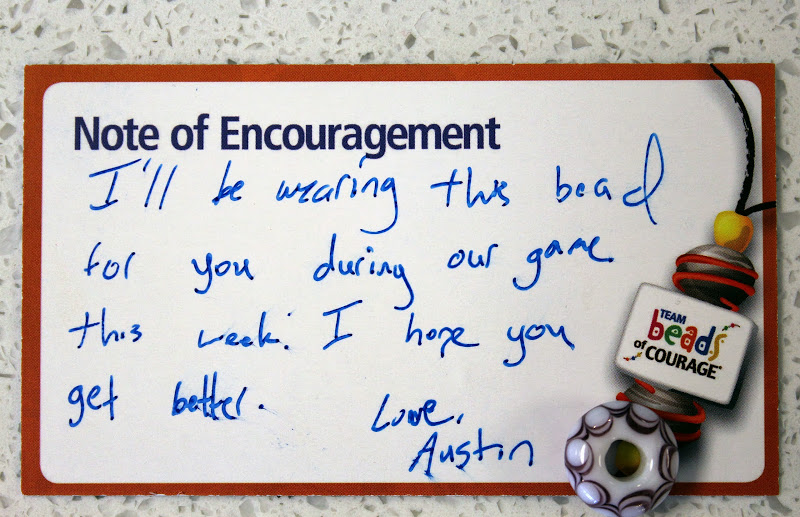 Note of Encouragement
I'll be wearing this bead
for you during our game
this week. I hope you
get better.
Love,
Austin
TEAM
beads
of COURAGE